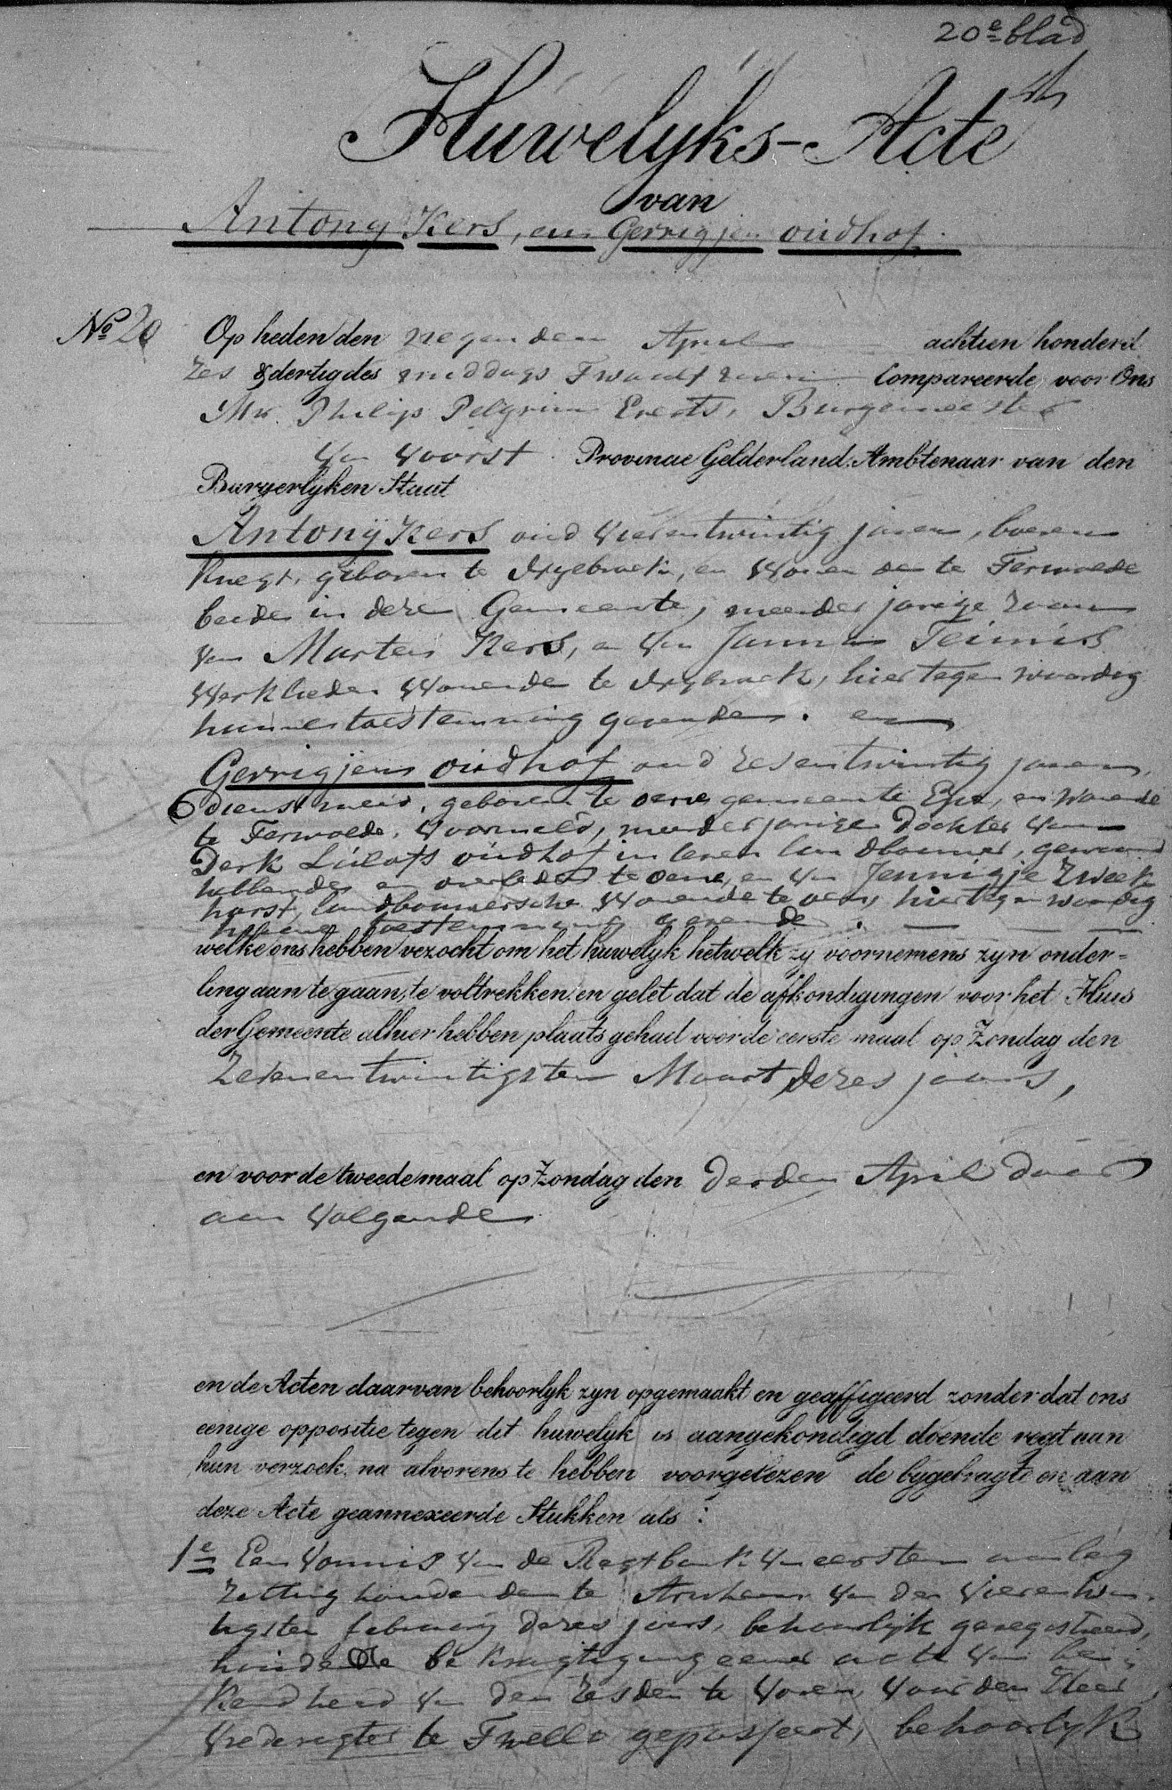 20e blad
Huwelyks-Acte
van
Antony Kers, en Gerrigjen oudhof.
No 20 Op heden den negenden April achtien honderd
zes & dertig des middags Twaalf uren Compareerde voor Ons
Mr. Philip Pelgrim Everts, Burgemeester
van Voorst Provincie Gelderland. Ambtenaar van den
Burgerlyken Staat
Antony Kers oud vierentwintig jaren, boeren
knegt, geboren te Nybroek, en wonende te Terwolde
beide in deze Gemeente, meerderjarige zoon
van Marten Kers, en van Janna Teunis
Werklieden wonende te Nybroek, hier tegenwoordig
hunne toestemming gevende. en
Gerrigjen oudhof oud zesentwintig jaren,
dienstmeid, geboren te oene gemeente Epe, en wonende
te Terwolde, voormeld, meerderjarige Dochter van
Derk Lulofs oudhof in leven landbouwer, gewoond
hebbende en overleden te oene, en van Jennigje Zweek
horst, landbouwersche wonende te oene, hier tegenwoordig
hare toestemming gevende.
welke ons hebben verzocht om het huwelyk hetwelk zy voornemens zyn onder-
ling aan te gaan, te voltrekken: en gelet dat de afkondigingen voor het Huis
der Gemeente alhier hebben plaats gehad voor de eerste maal op Zondag den
Zevenentwintigsten Maart dezes jaars,
en voor de tweede maal op Zondag den derden April daar
aan volgende
en de Acten daarvan behoorlyk zyn opgemaakt en geaffigeerd zonder dat ons
eenige oppositie tegen dit huwelyk is aangekondigd doende regt aan
hun verzoek na alvorens te hebben voorgelezen de bygebragte en aan
deze Acte geannexeerde Stukken als:
1e Een Vonnis van de Regtbank van eersten aanleg
zitting houdende te Arnhem van den vierentwin-
tigsten february dezes jaars, behoorlyk geregistreerd,
houdende bekragtiging eener acte van be-
kendheid van den zesden te voren voor den Heer
Vrederegter te Twello gepasseert, behoorlyk